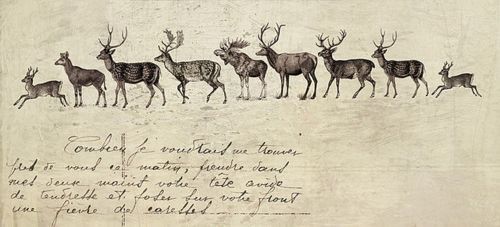 Combien je voudrais me trouver
près de vous ce matin, prendre dans
mes deux mains votre tête avide
de tendresse et poser sur votre front
une fièvre de caresses